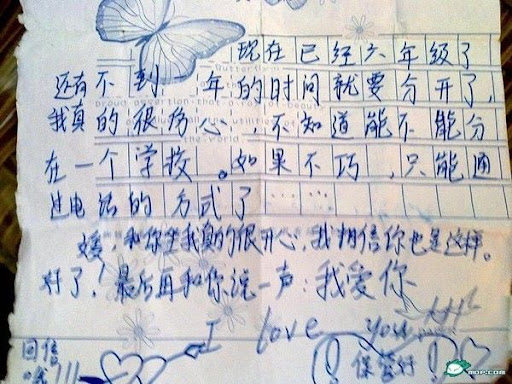 现在已经六年级了
还有不到 年的时间就要分开了,
我真的很伤心,不知道能不能分
在一个学校。如果不巧,只能通
过电话的方式了……
媛,和你坐我真的很开心,我相信你也是这样。
好了!最后再和你说一声:我爱你
I love you
回信
哦!!!
保管好!
MOP.COM